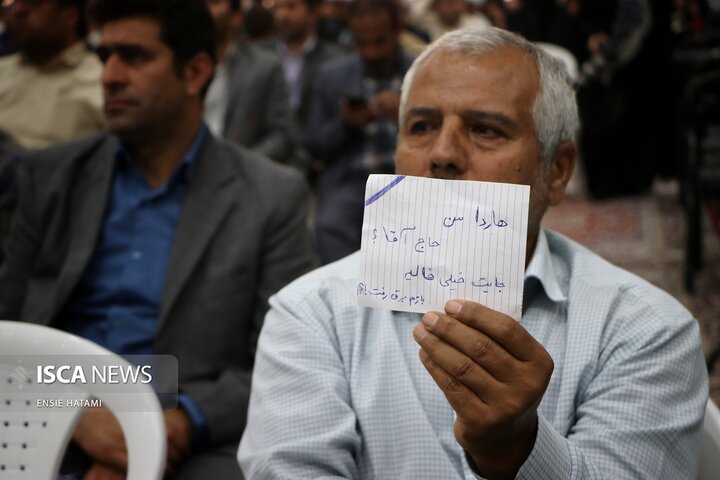 هاردا سن
حاج آقا؟
جایت خیلی خالیه
بازم برق رفت!؟
ISCA NEWS
ENSIE HATAMI